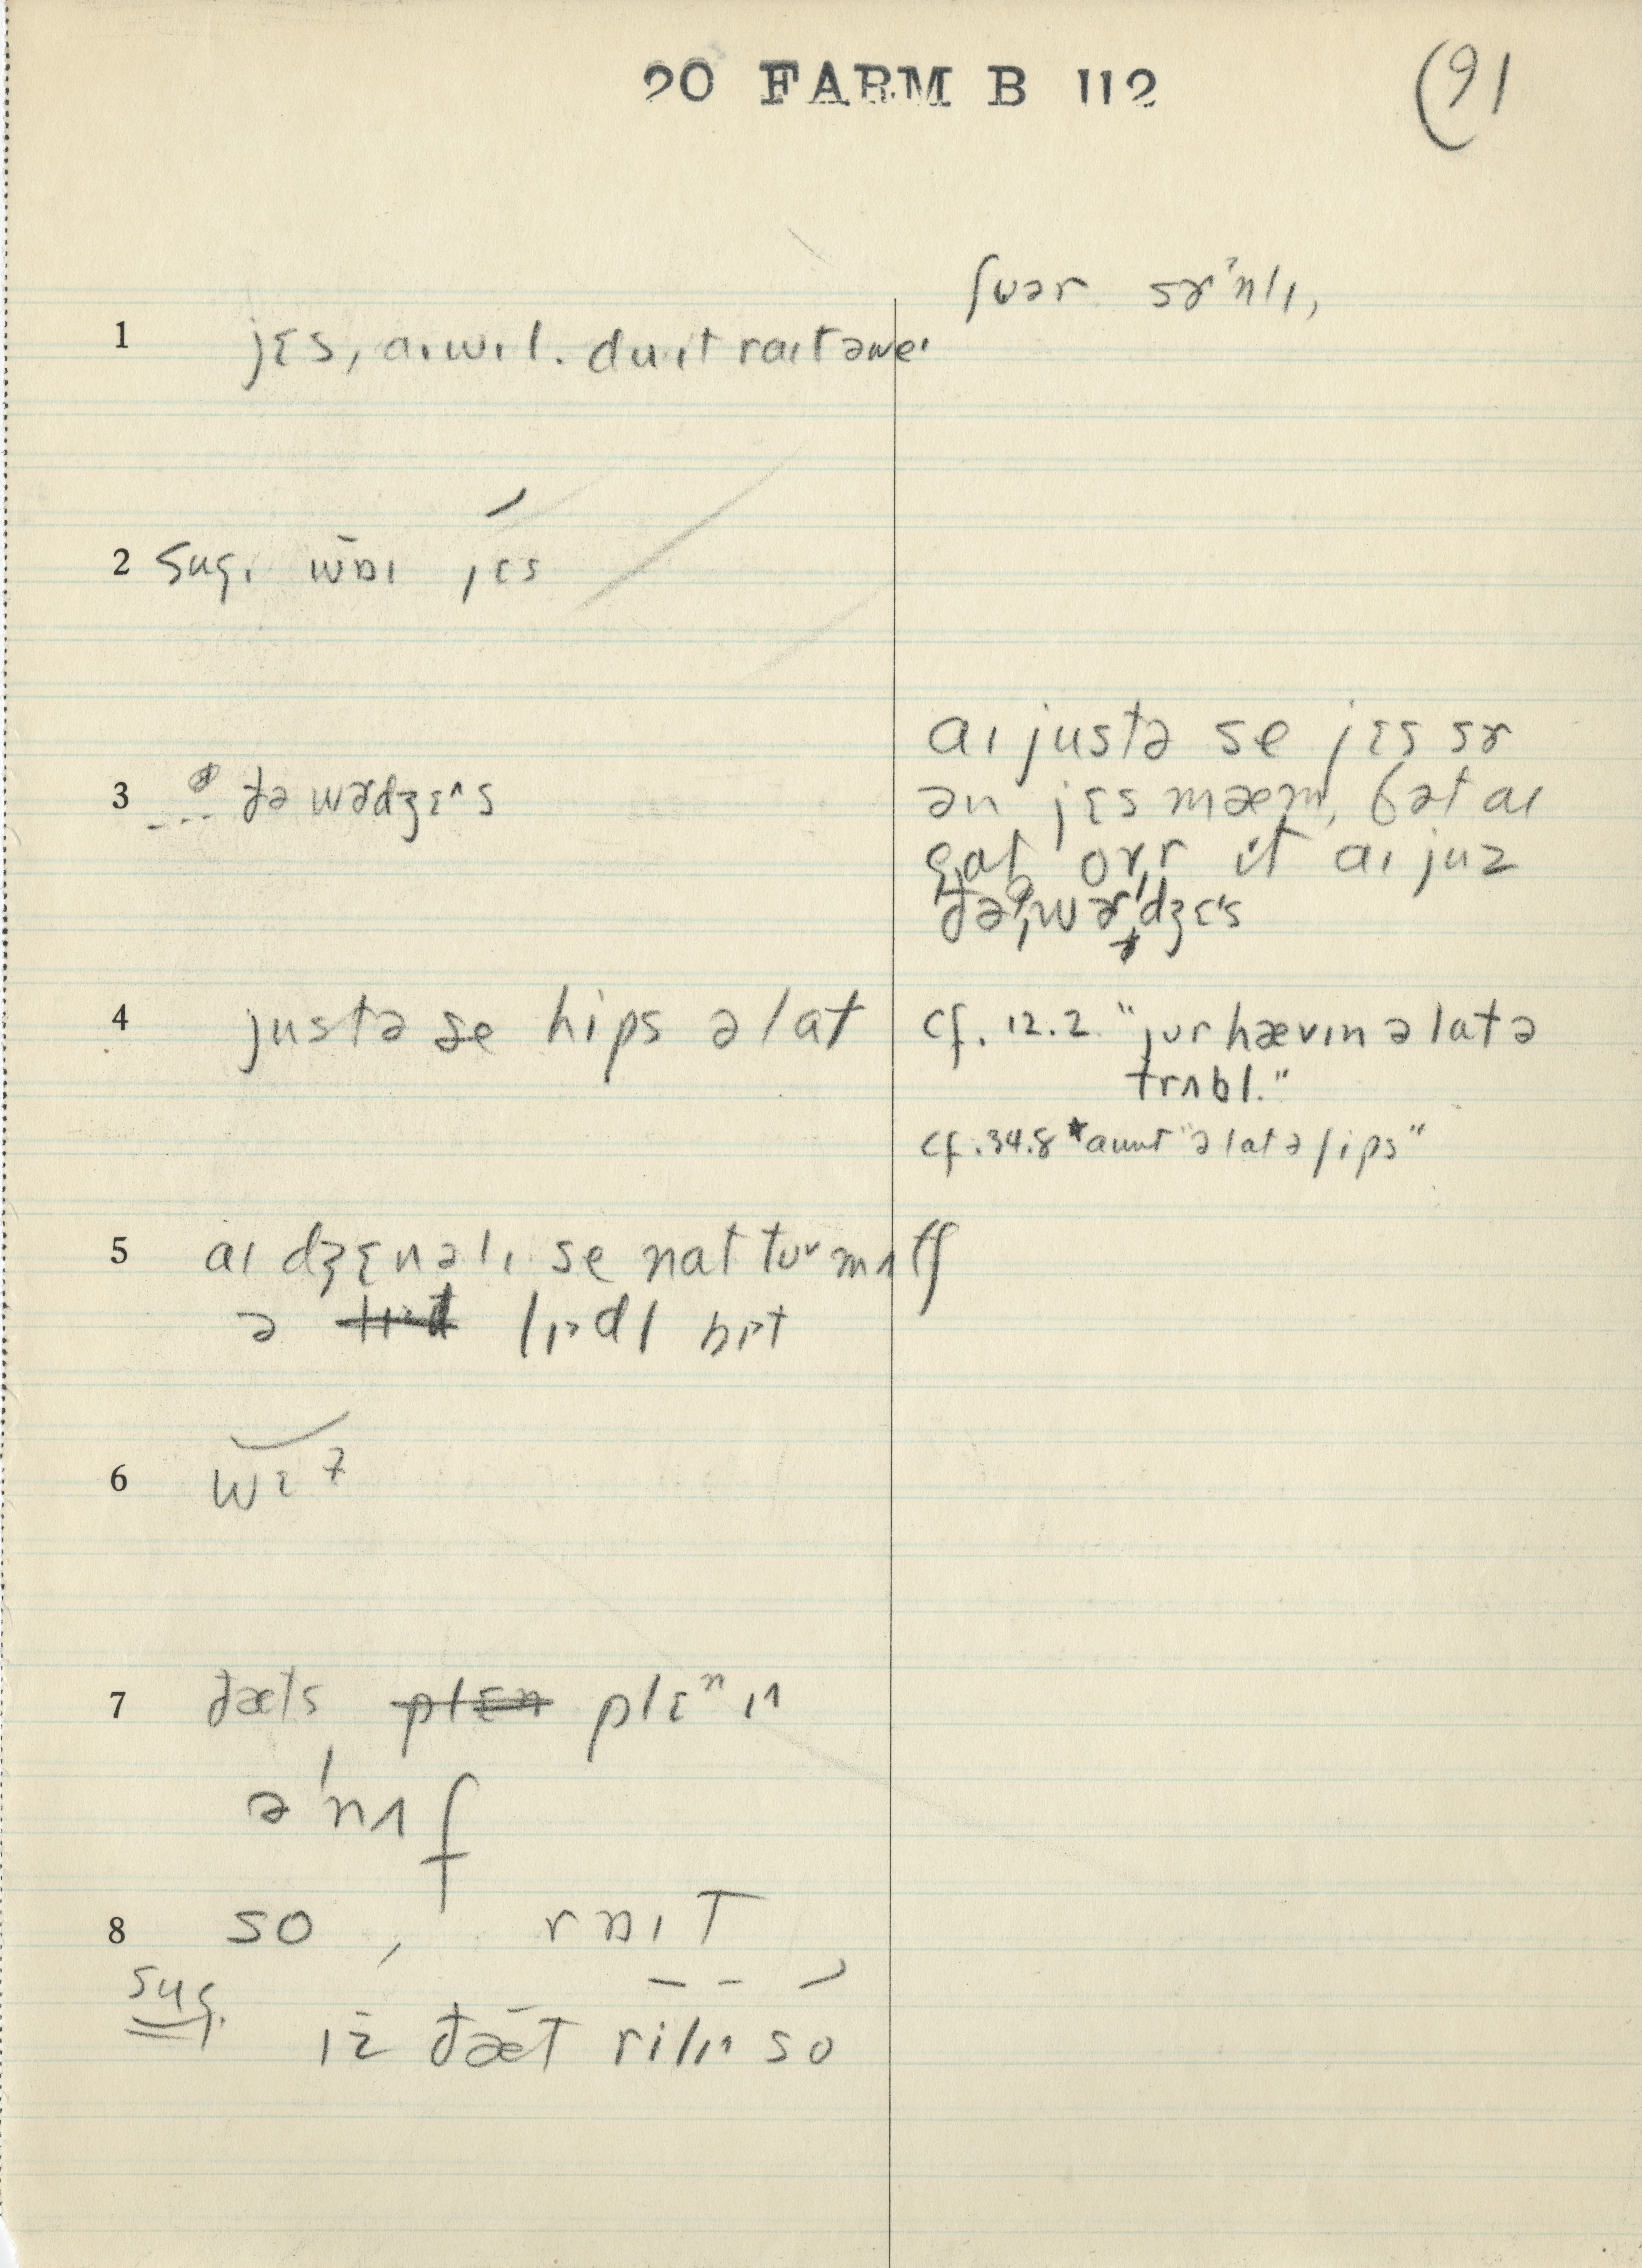 20 FARM B 112
(91
ʃuər sɚˈnlɪ,
1 jɛs, aɪ wɪl. du ɪt raɪt əwe
2 sug. wɒɪ jɛs
3 --- ðə wɚdʒɛˆs
aɪ justə se jɛs sɚ
ən jɛs mæm, bət aɪ
gat ovr it aɪ juz
ðə wɚdʒɛs
4 justə se hips ə lat
cf. 12.2. "jur hævɪn ə lat ə
trʌbl."
cf. 34.8 *aunt "ə lat ə lips"
5 aɪ dʒɛnəlɪ se nat tu mʌtʃ
ə lɪədl bɪt
6 wɛ
7 ðæts plɛn plɛⁿɪ
əˈnʌf
8 so, rɒɪt
sug. ɪz ðæt rilɪ so